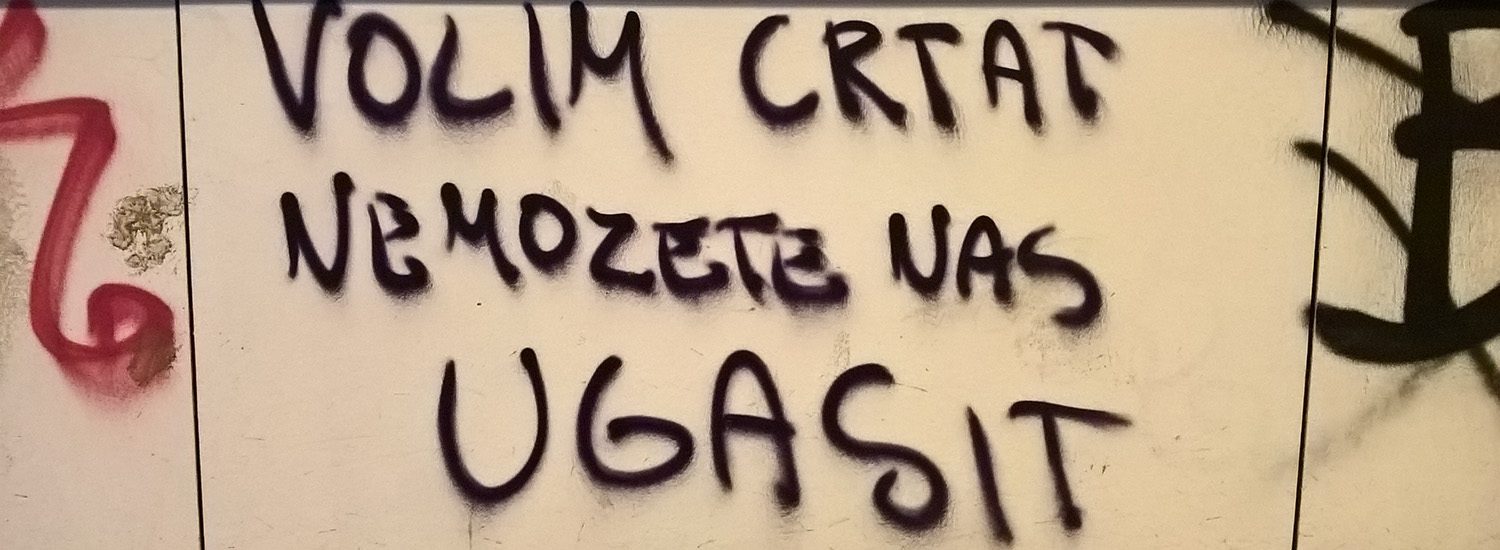 VOLIM CRTAT
NEMOZETE NAS
UGASIT